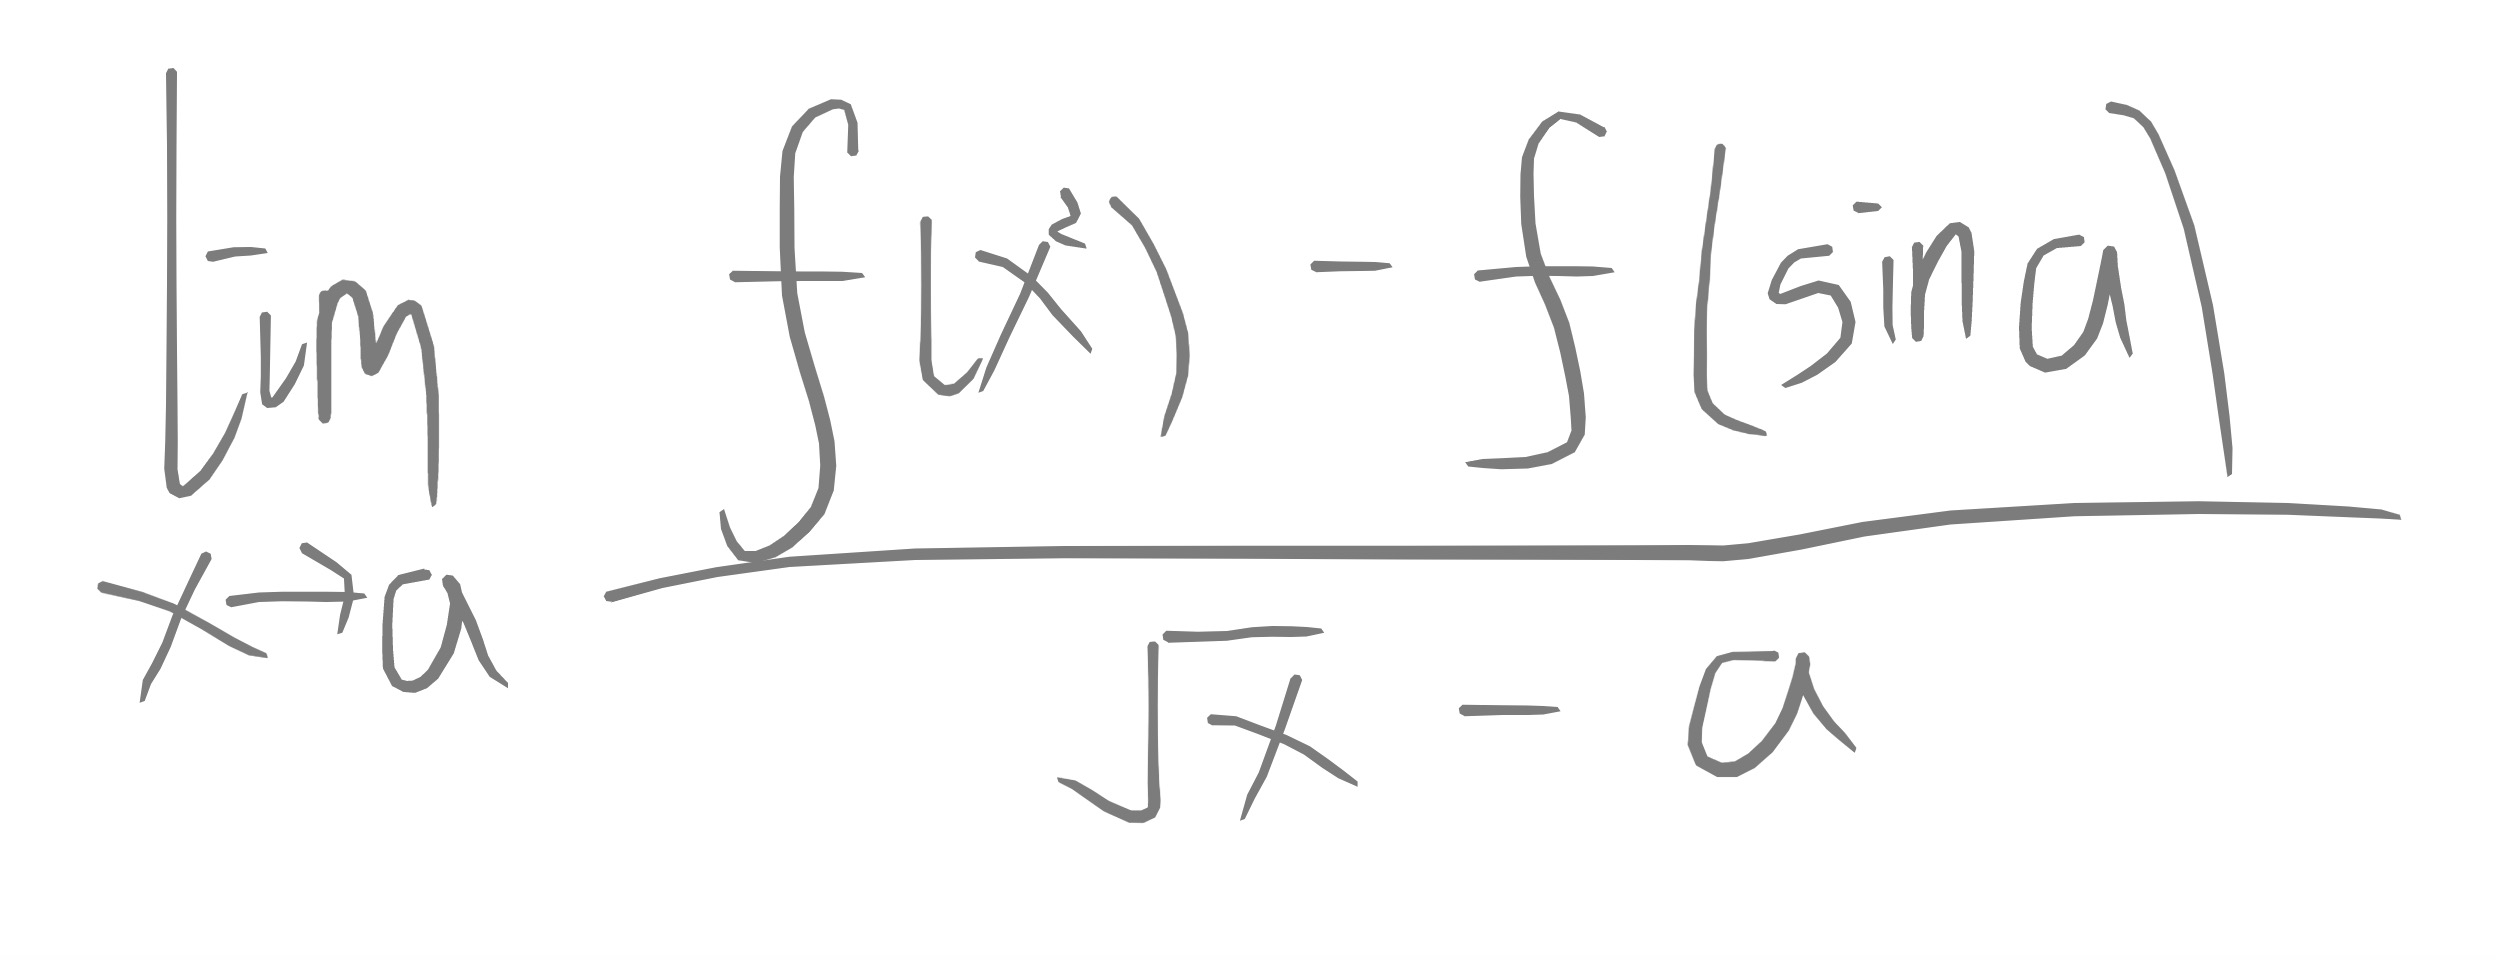 lim x→a (f(x²) - f(sina)) / (√x - a)